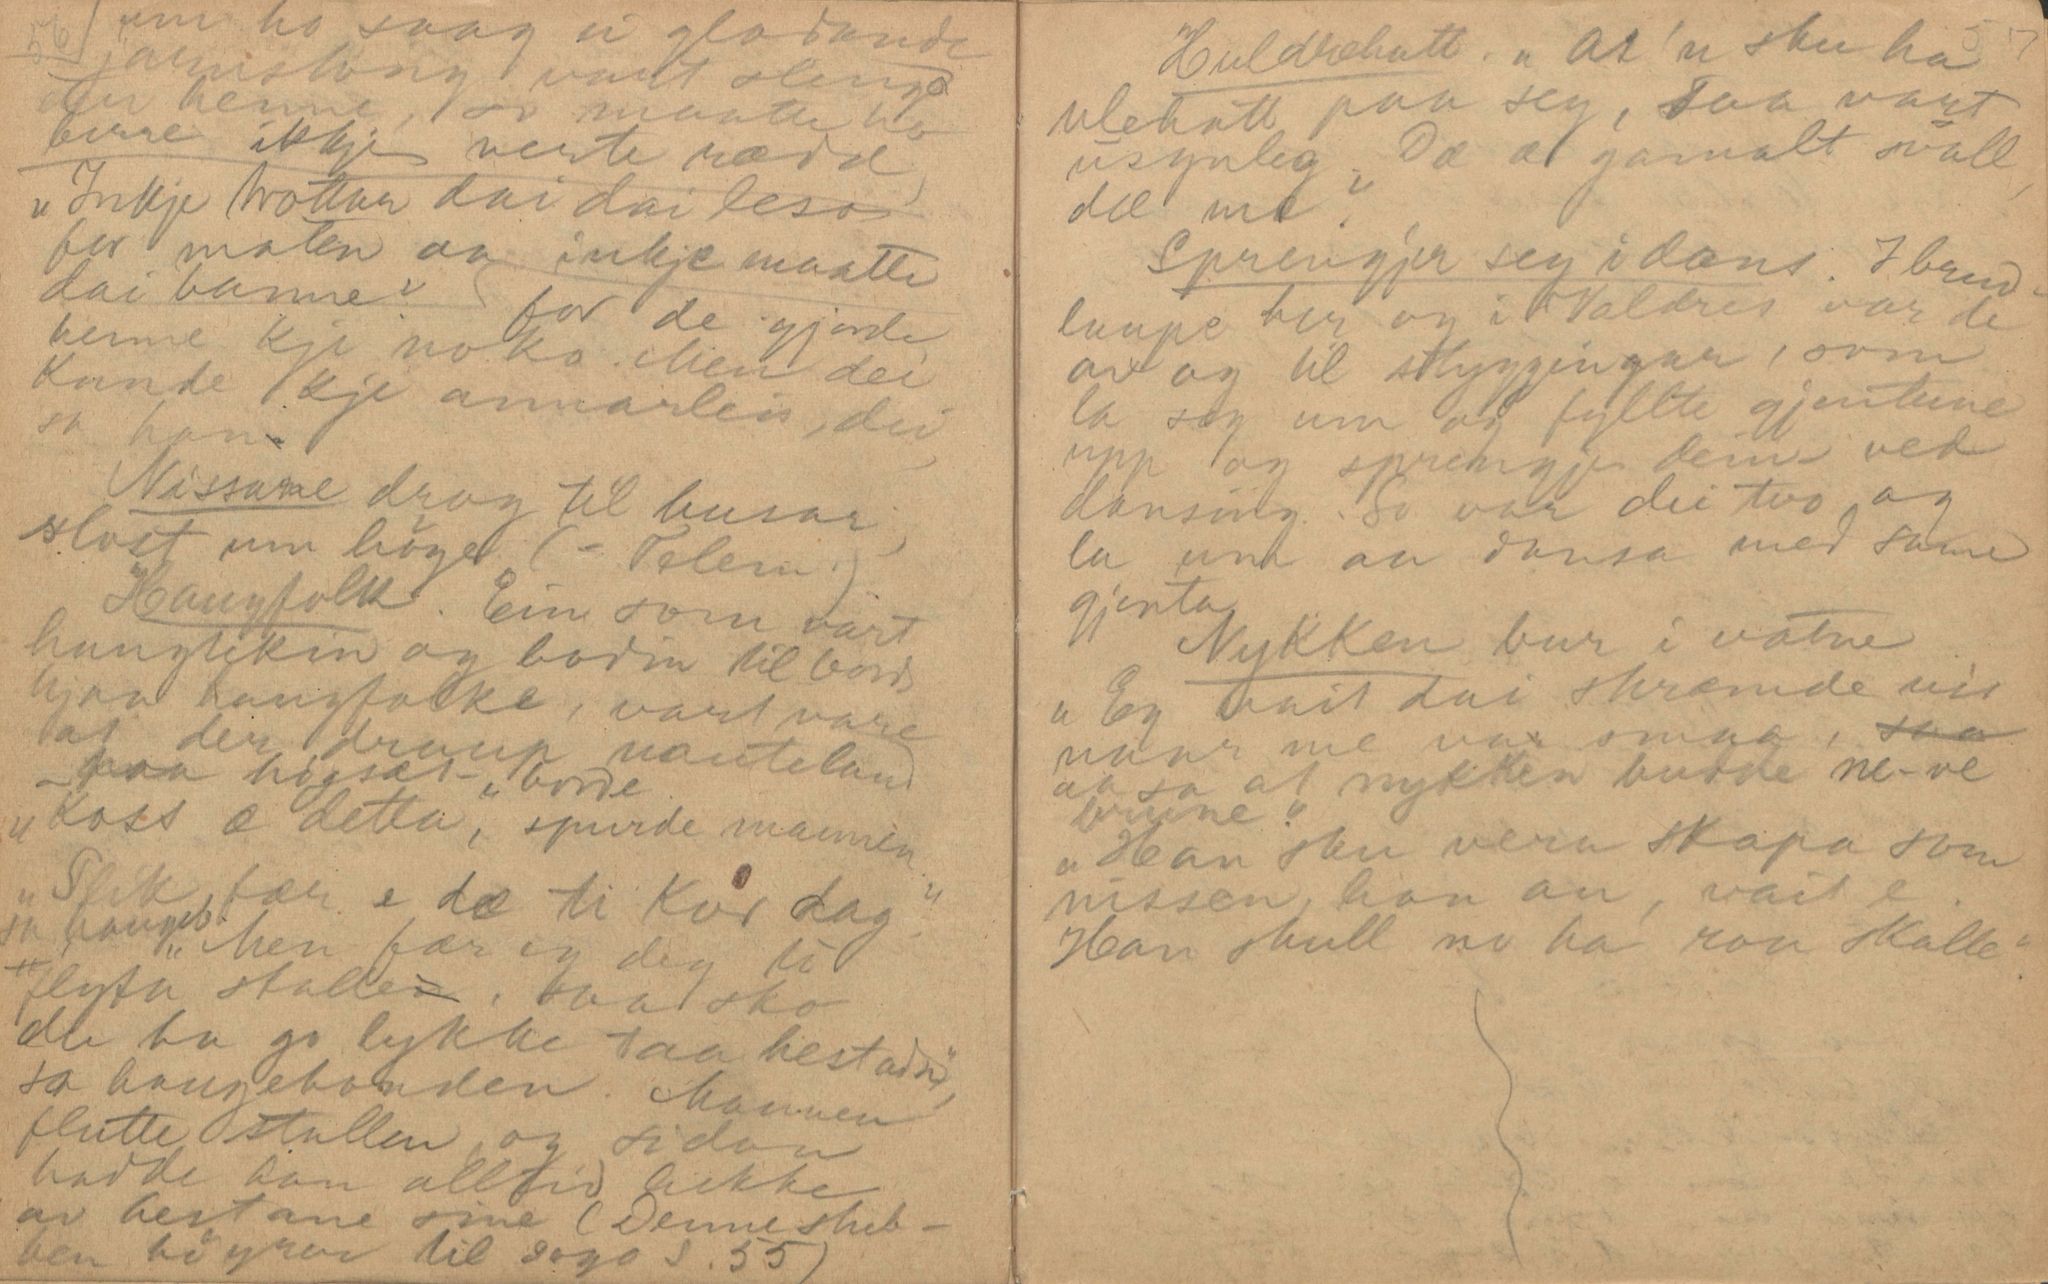 56
um ho saag ei glodande
jarnstong vart slengd
etter henne, so maatte ho
berre ikkje verte rædd,
"Inkje brottar dai dai leso
for maten aa inkje maatte
dai banne" for de gjorde
henne kje noko. Men dei
kunde kje annarleis, dei,
sa han.
Nissane drog til husar,
slost um höye. (- Telem.)
Haugfolk. Ein som vart
haugtikin og bodin til bords
hjaa haugfolke, vart vare
at der draup nauteland
paa högsæt- borde.
"Koss æ detta," spurde mannen
"Slik fær e dæ ti kvar dag"
sa haugeb.
"Men fær eg deg ti
flyta stallen, saa sko
du ha go lykke taa hestadn",
sa haugebonden. Mannen
flutte stallen og sidan
hadde han alltid lukke
av hestane sine (Denne stub-
ben höyrer til soga s. 55)
57
Huldrehatt. "At 'n sku ha
ulehatt paa seg, saa vart
usynleg. Dæ æ gamalt svall,
dæ mæ".
Sprengjer seg i dans. I brud-
laupe her og i Valdres var de
av og til styggingar, som
la seg um og fyllte gjentene
upp og sprengje deim ved
dansing. So var dei two og
la um aa dansa med same
gjenta.
Nykken bur i vatne
"Eg vait dai skræmde vis
naar me var smaa,
aa sa at nykken budde ne-ve
brune"
"Han sku vera skapa som
nissen, han au, vait e.
Han skull no ha rau skalle"